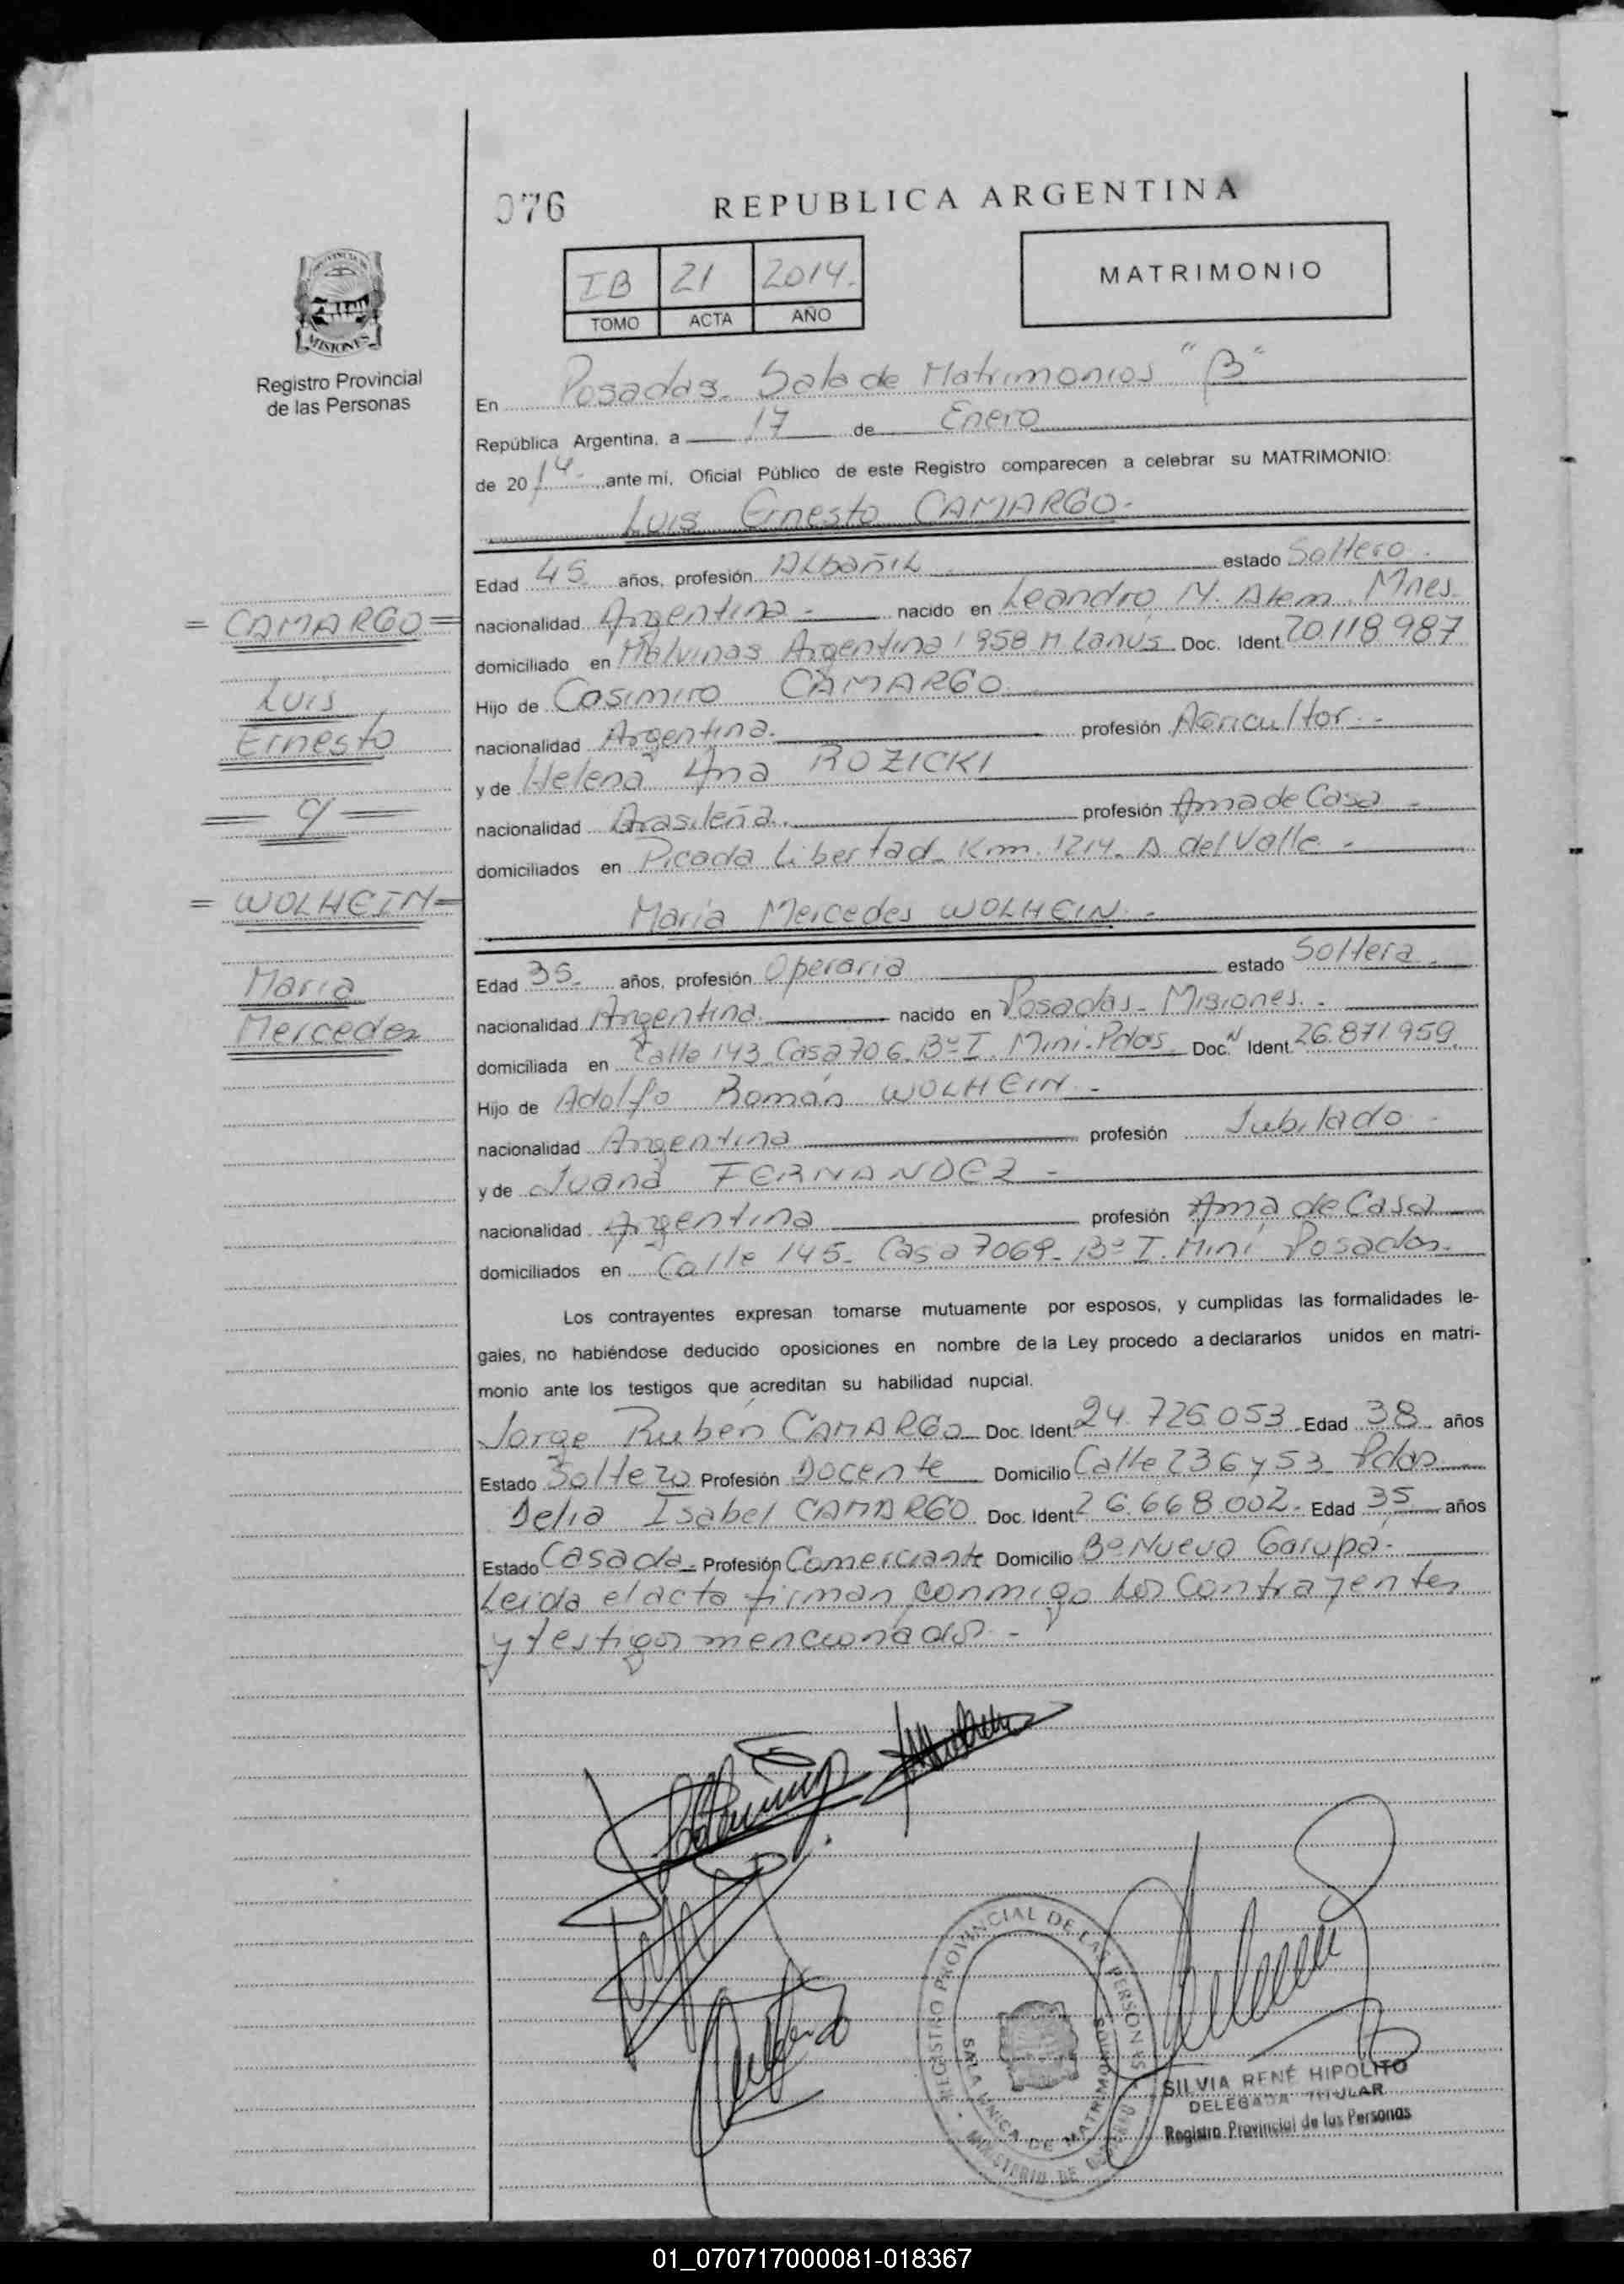 076
REPUBLICA ARGENTINA
IB 21 2014.
TOMO ACTA AÑO
MATRIMONIO
MISIONES
Registro Provincial
de las Personas
En Posadas. Sala de Matrimonios "B"
República Argentina, a 17 de Enero
de 2014 ante mi, Oficial Público de este Registro comparecen a celebrar su MATRIMONIO:
Luis Ernesto CAMARGO.-
Edad 45 años, profesión Albañil estado Soltero.
nacionalidad Argentina.- nacido en Leandro N. Alem. Mnes.
domiciliado en Malvinas Argentina 1958 M. Lanús Doc. Ident. 20.118.987
Hijo de Casimiro CAMARGO
nacionalidad Argentina. profesión Agricultor.-
y de Helena Ana ROZICKI
nacionalidad Brasileña. profesión Ama de Casa -
domiciliados en Picada Libertad. Km. 1214. A. del Valle -
= CAMARGO =
Luis
Ernesto
= y =
= WOLHEIN =
María
Mercedes
María Mercedes WOLHEIN.-
Edad 35. años, profesión Operaria estado Soltera.
nacionalidad Argentina. nacido en Posadas - Misiones.-
domiciliada en Calle 143 Casa 706. Bº I. Mini-Pdas Doc.N Ident. 26.871.959.
Hijo de Adolfo Román WOLHEIN.-
nacionalidad Argentina profesión Jubilado -
y de Juana FERNANDEZ -
nacionalidad Argentina profesión Ama de Casa
domiciliados en Calle 145. Casa 7069. Bº I. Mini Posadas.
Los contrayentes expresan tomarse mutuamente por esposos, y cumplidas las formalidades le-
gales, no habiéndose deducido oposiciones en nombre de la Ley procedo a declararlos unidos en matri-
monio ante los testigos que acreditan su habilidad nupcial.
Jorge Rubén CAMARGO Doc. Ident. 24.725.053 Edad 38 años
Estado Soltero Profesión Docente Domicilio Calle 236 y 53 Pdas
Delia Isabel CAMARGO Doc. Ident. 26.668.002. Edad 35 años
Estado Casada Profesión Comerciante Domicilio Bº Nuevo Garupá.
Leida el acta firman conmigo los Contrayentes
y testigos mencionados.-
REGISTRO PROVINCIAL DE LAS PERSONAS
SALA UNICA DE MATRIMONIOS
MINISTERIO DE
SILVIA RENÉ HIPOLITO
DELEGADA TITULAR
Registro Provincial de las Personas
01_070717000081-018367